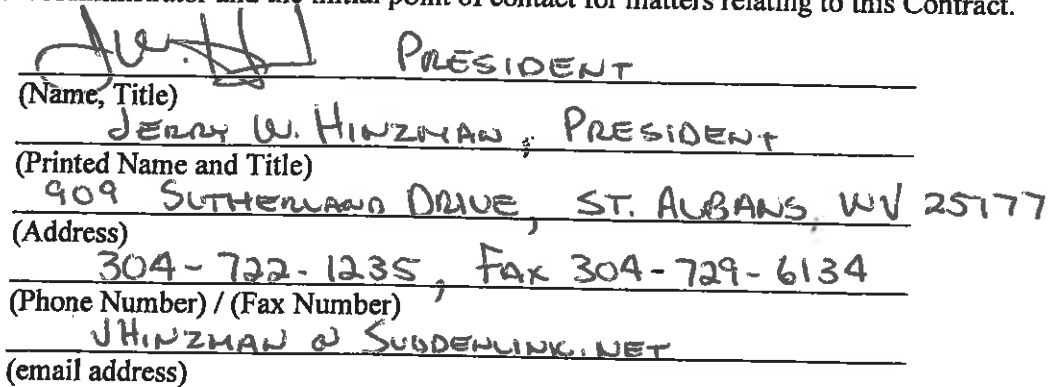 and the initial point of contact for matters relating to this Contract.
PRESIDENT
(Name, Title)
JERRY W. HINZMAN, PRESIDENT
(Printed Name and Title)
909 SUTHERLAND DRIVE, ST. ALBANS, WV 25177
(Address)
304-722-1235, FAX 304-729-6134
(Phone Number) / (Fax Number)
JHINZMAN @ SUDDENLINK.NET
(email address)